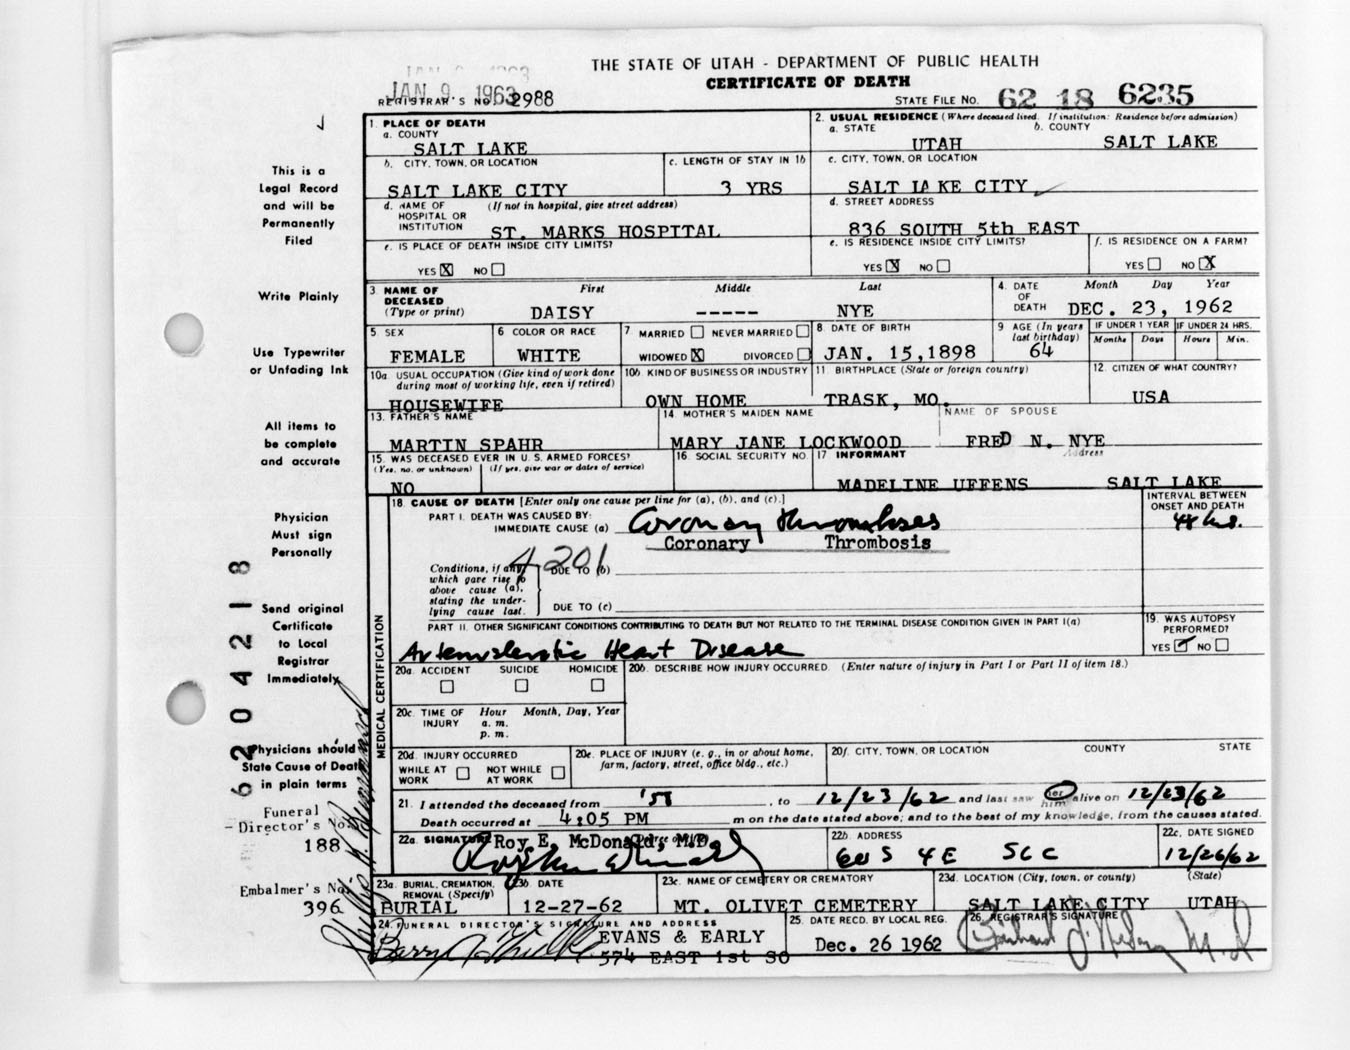 THE STATE OF UTAH - DEPARTMENT OF PUBLIC HEALTH
CERTIFICATE OF DEATH
JAN 9 1963
REGISTRAR'S NO. 2988
STATE FILE NO. 62 18 6235
This is a
Legal Record
and will be
Permanently
Filed
Write Plainly
Use Typewriter
or Unfading Ink
All items to
be complete
and accurate
Physician
Must sign
Personally
Send original
Certificate
to Local
Registrar
Immediately
Physicians should
State Cause of Death
in plain terms
Funeral
Director's No.
188
Embalmer's No.
396
62 04218
1. PLACE OF DEATH
a. COUNTY
SALT LAKE
2. USUAL RESIDENCE (Where deceased lived. If institution: Residence before admission)
a. STATE b. COUNTY
UTAH SALT LAKE
b. CITY, TOWN, OR LOCATION
SALT LAKE CITY
c. LENGTH OF STAY IN 1b
3 YRS
c. CITY, TOWN, OR LOCATION
SALT LAKE CITY
d. NAME OF HOSPITAL OR INSTITUTION (If not in hospital, give street address)
ST. MARKS HOSPITAL
d. STREET ADDRESS
836 SOUTH 5th EAST
e. IS PLACE OF DEATH INSIDE CITY LIMITS?
YES X NO
e. IS RESIDENCE INSIDE CITY LIMITS?
YES X NO
f. IS RESIDENCE ON A FARM?
YES NO X
3. NAME OF DECEASED (Type or print)
First Middle Last
DAISY ----- NYE
4. DATE OF DEATH Month Day Year
DEC. 23, 1962
5 SEX
FEMALE
6 COLOR OR RACE
WHITE
7 MARRIED NEVER MARRIED
WIDOWED X DIVORCED
8 DATE OF BIRTH
JAN. 15,1898
9 AGE (In years last birthday)
64
IF UNDER 1 YEAR IF UNDER 24 HRS.
Months Days Hours Min.
10a USUAL OCCUPATION (Give kind of work done during most of working life, even if retired)
HOUSEWIFE
10b KIND OF BUSINESS OR INDUSTRY
OWN HOME
11 BIRTHPLACE (State or foreign country)
TRASK, MO.
12. CITIZEN OF WHAT COUNTRY?
USA
13. FATHER'S NAME
MARTIN SPAHR
14 MOTHER'S MAIDEN NAME
MARY JANE LOCKWOOD
NAME OF SPOUSE
FRED N. NYE
15. WAS DECEASED EVER IN U. S. ARMED FORCES?
(Yes, no. or unknown) (If yes, give war or dates of service)
NO
16. SOCIAL SECURITY NO.
17 INFORMANT Address
MADELINE UFFENS SALT LAKE
MEDICAL CERTIFICATION
18 CAUSE OF DEATH [Enter only one cause per line for (a), (b), and (c).]
INTERVAL BETWEEN ONSET AND DEATH
PART I. DEATH WAS CAUSED BY:
IMMEDIATE CAUSE (a) Coronary thromboses
Coronary Thrombosis
4201
Conditions, if any, which gave rise to above cause (a), stating the underlying cause last.
DUE TO (b)
DUE TO (c)
PART II. OTHER SIGNIFICANT CONDITIONS CONTRIBUTING TO DEATH BUT NOT RELATED TO THE TERMINAL DISEASE CONDITION GIVEN IN PART I(a)
Arteriosclerotic Heart Disease
19. WAS AUTOPSY PERFORMED?
YES ✓ NO
20a. ACCIDENT SUICIDE HOMICIDE
20b. DESCRIBE HOW INJURY OCCURRED. (Enter nature of injury in Part I or Part II of item 18.)
20c. TIME OF INJURY Hour Month, Day, Year
a. m.
p. m.
20d. INJURY OCCURRED
WHILE AT WORK NOT WHILE AT WORK
20e. PLACE OF INJURY (e. g., in or about home, farm, factory, street, office bldg., etc.)
20f. CITY, TOWN, OR LOCATION COUNTY STATE
21. I attended the deceased from , to 12/23/62 and last saw her him alive on 12/23/62
Death occurred at 4:05 PM m on the date stated above; and to the best of my knowledge, from the causes stated.
22a. SIGNATURE Roy E. McDonald, M.D.
22b. ADDRESS
S 4 E SLC
22c. DATE SIGNED
12/26/62
23a. BURIAL, CREMATION, REMOVAL (Specify)
BURIAL
23b DATE
12-27-62
23c. NAME OF CEMETERY OR CREMATORY
MT. OLIVET CEMETERY
23d. LOCATION (City, town. or county) (State)
SALT LAKE CITY UTAH
24. FUNERAL DIRECTOR'S SIGNATURE AND ADDRESS
EVANS & EARLY
574 EAST 1st SO
25. DATE RECD. BY LOCAL REG.
Dec. 26 1962
26. REGISTRAR'S SIGNATURE